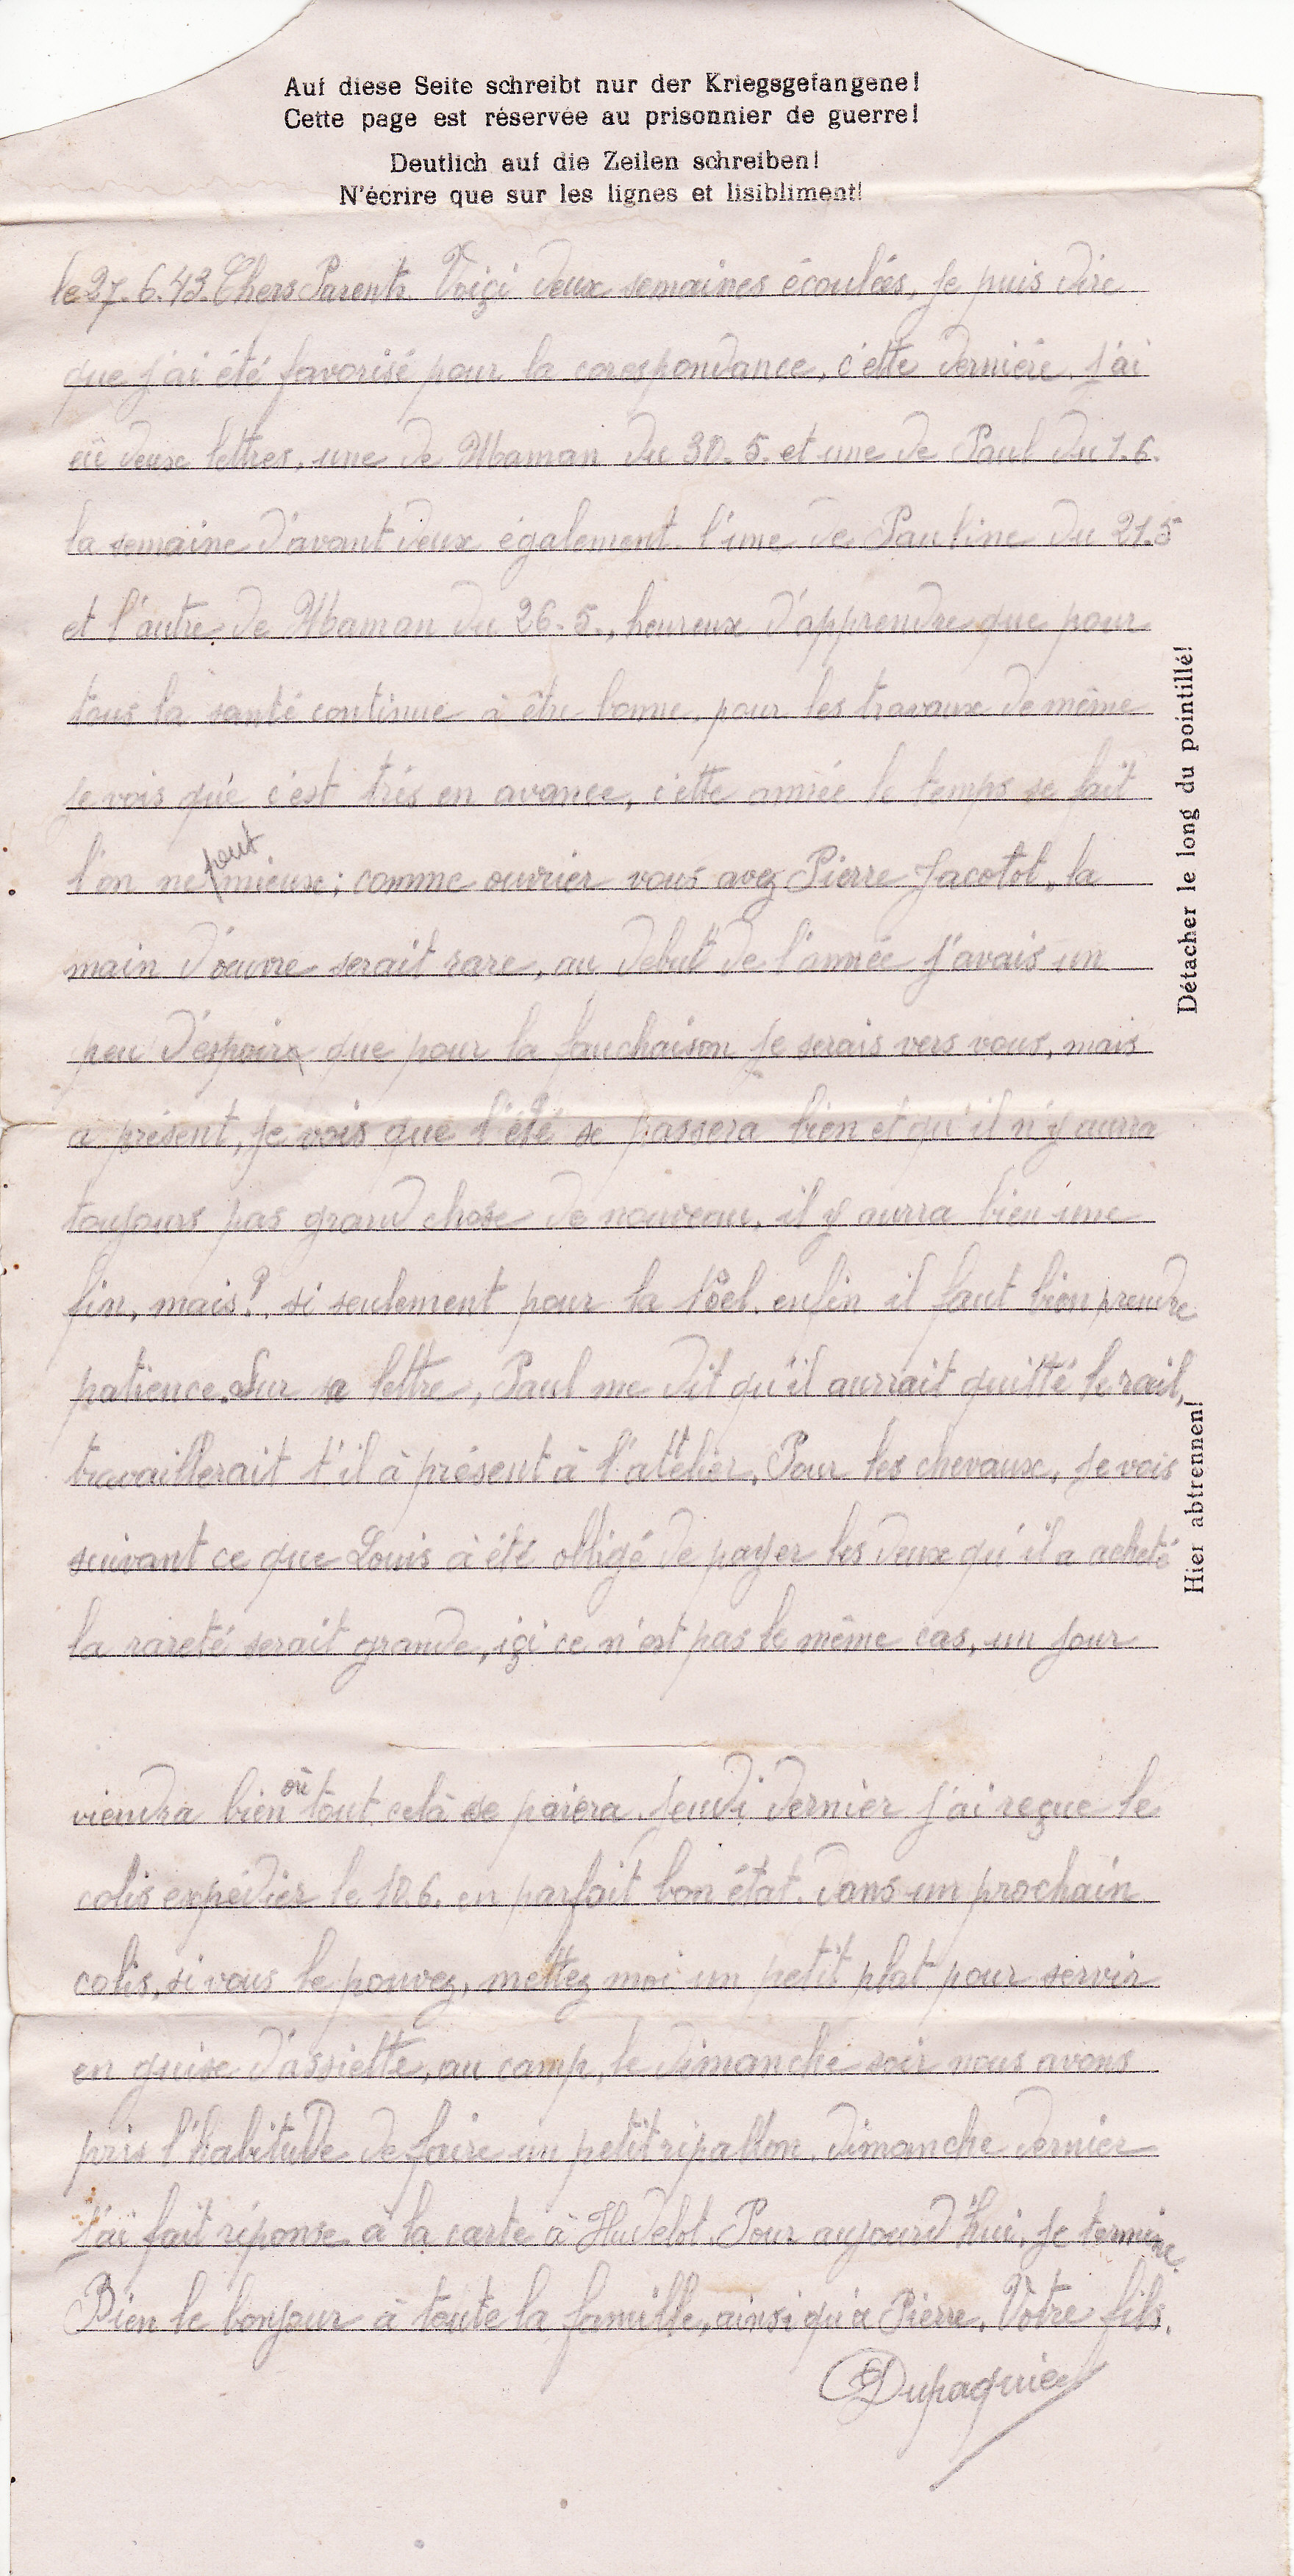 Auf diese Seite schreibt nur der Kriegsgefangene!
Cette page est réservée au prisonnier de guerre!
Deutlich auf die Zeilen schreiben!
N'écrire que sur les lignes et lisibliment!
le 27.6.43. Chers Parents. Voiçi deux semaines écoulées, je puis dire
que j'ai été favorisé pour la corespondance, c'ette dernière, j'ai
eû deux lettres, une de Maman du 30.5. et une de Paul du 1.6.
la semaine d'avant deux également. l'une de Pauline du 21.5
et l'autre de Maman du 26.5., heureux d'apprendre que pour
tous la santé continue à être bonne, pour les travaux de même
je vois que c'est très en avance, c'ette année le temps se fait
l'on ne peut mieux; comme ouvrier vous avez Pierre Jacotot, la
main d'oeuvre serait rare, au debut de l'année j'avais un
peu d'espoir que pour la fauchaison je serais vers vous, mais
a présent, je vois que l'été se passera bien et qu'il n'y aurra
toujours pas grand chose de nouveau, il y aurra bien une
fin, mais?, si seulement pour la Nöel. enfin il faut bien prendre
patience. Sur sa lettre, Paul me dit qu'il aurrait quitté le rail,
travaillerait t'il à présent à l'atelier. Pour les chevaux, je vois
suivant ce que Louis à été obligé de payer les deux qu'il a acheté
la rareté serait grande, içi ce n'est pas le même cas, un jour
viendra bien où tout celà se paiera. Jeudi dernier j'ai reçue le
colis expédier le 10.6. en parfait bon état. Dans un prochain
colis, si vous le pouvez, mettez moi un petit plat pour servir
en guise d'assiette, au camp, le dimanche soir nous avons
pris l'habitude de faire un petit ripallon. dimanche dernier
j'ai fait réponse à la carte à Hudelot. Pour aujourd'hui, je termine.
Bien le bonjour à toute la famille, ainsi qu'à Pierre. Votre fils.
Dupaquier
Détacher le long du pointillé!
Hier abtrennen!